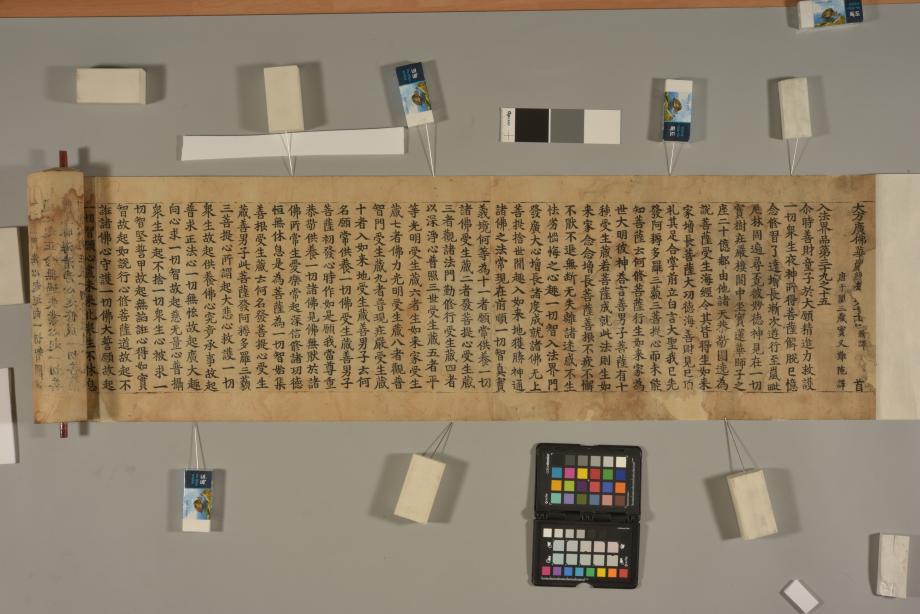 大方廣佛華嚴經
首
于闐國三藏實叉難陀譯
入法界品第三十九之十五
尒時善財童子於大願精進力救護
一切衆生夜神所得菩薩解脫已憶
念修習了達增長漸次遊行至嵐毗
尼林周遍尋覓彼妙德神見在一切
寶樹莊嚴樓閣中坐寶蓮華師子之
座二十億那由他諸天恭敬圍遶為
說菩薩受生海經令其皆得生如來
家增長菩薩大功德海善財見已頂
礼其足合掌前立白言大聖我已先
發阿耨多羅三藐三菩提心而未能
知菩薩云何修菩薩行生如來家為
世大明彼神荅言善男子菩薩有十
種受生藏若菩薩成就此法則生如
來家念念增長菩薩善根不疲不懈
不猒不退無斷無失離諸迷惑不生
怯劣惱悔之心趣一切智入法界門
發廣大心增長諸度成就諸佛無上
菩提捨世間趣入如來地獲勝神通
諸佛之法常現在前順一切智真實
義境何等為十一者願常供養一切
諸佛受生藏二者發菩提心受生藏
三者觀諸法門勤修行受生藏四者
以深淨心普照三世受生藏五者平
等光明受生藏六者生如來家受生
藏七者佛力光明受生藏八者觀普
智門受生藏九者普現莊嚴受生藏
十者入如來地受生藏善男子云何
名願常供養一切佛受生藏善男子
菩薩初發心時作如是願我當尊重
恭敬供養一切諸佛見佛無猒於諸
佛所常生愛樂常起深信修諸功德
恒無休息是為菩薩為一切智始集
善根受生藏云何名發菩提心受生
藏善男子此菩薩發阿耨多羅三藐
三菩提心所謂起大悲心救護一切
衆生故起供養佛心究竟承事故起
普求正法心一切無恡故起廣大趣
向心求一切智故起慈無量心普攝
衆生故起不捨一切衆生心被求一
切智堅誓甲故起無諂誑心得如實
智故起如說行心修菩薩道故起不
誑諸佛心守護一切佛大誓願故起
一切智願心盡未來化衆生不休息